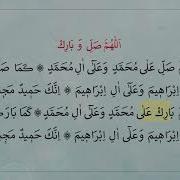 اَللّٰهُمَّ صَلِّ وَ بَارِكْ
صَلِّ عَلٰى مُحَمَّدٍ وَعَلٰٓى اٰلِ مُحَمَّدٍ ۞ كَمَا
اِبْرَاهِيْمَ وَعَلٰٓى اٰلِ اِبْرَاهِيْمَ ۞ اِنَّكَ حَمِيْدٌ
بَارِكْ عَلٰى مُحَمَّدٍ وَعَلٰٓى اٰلِ مُحَمَّدٍ ۞ كَمَا
اِبْرَاهِيْمَ وَعَلٰٓى اٰلِ اِبْرَاهِيْمَ ۞ اِنَّكَ حَمِيْدٌ